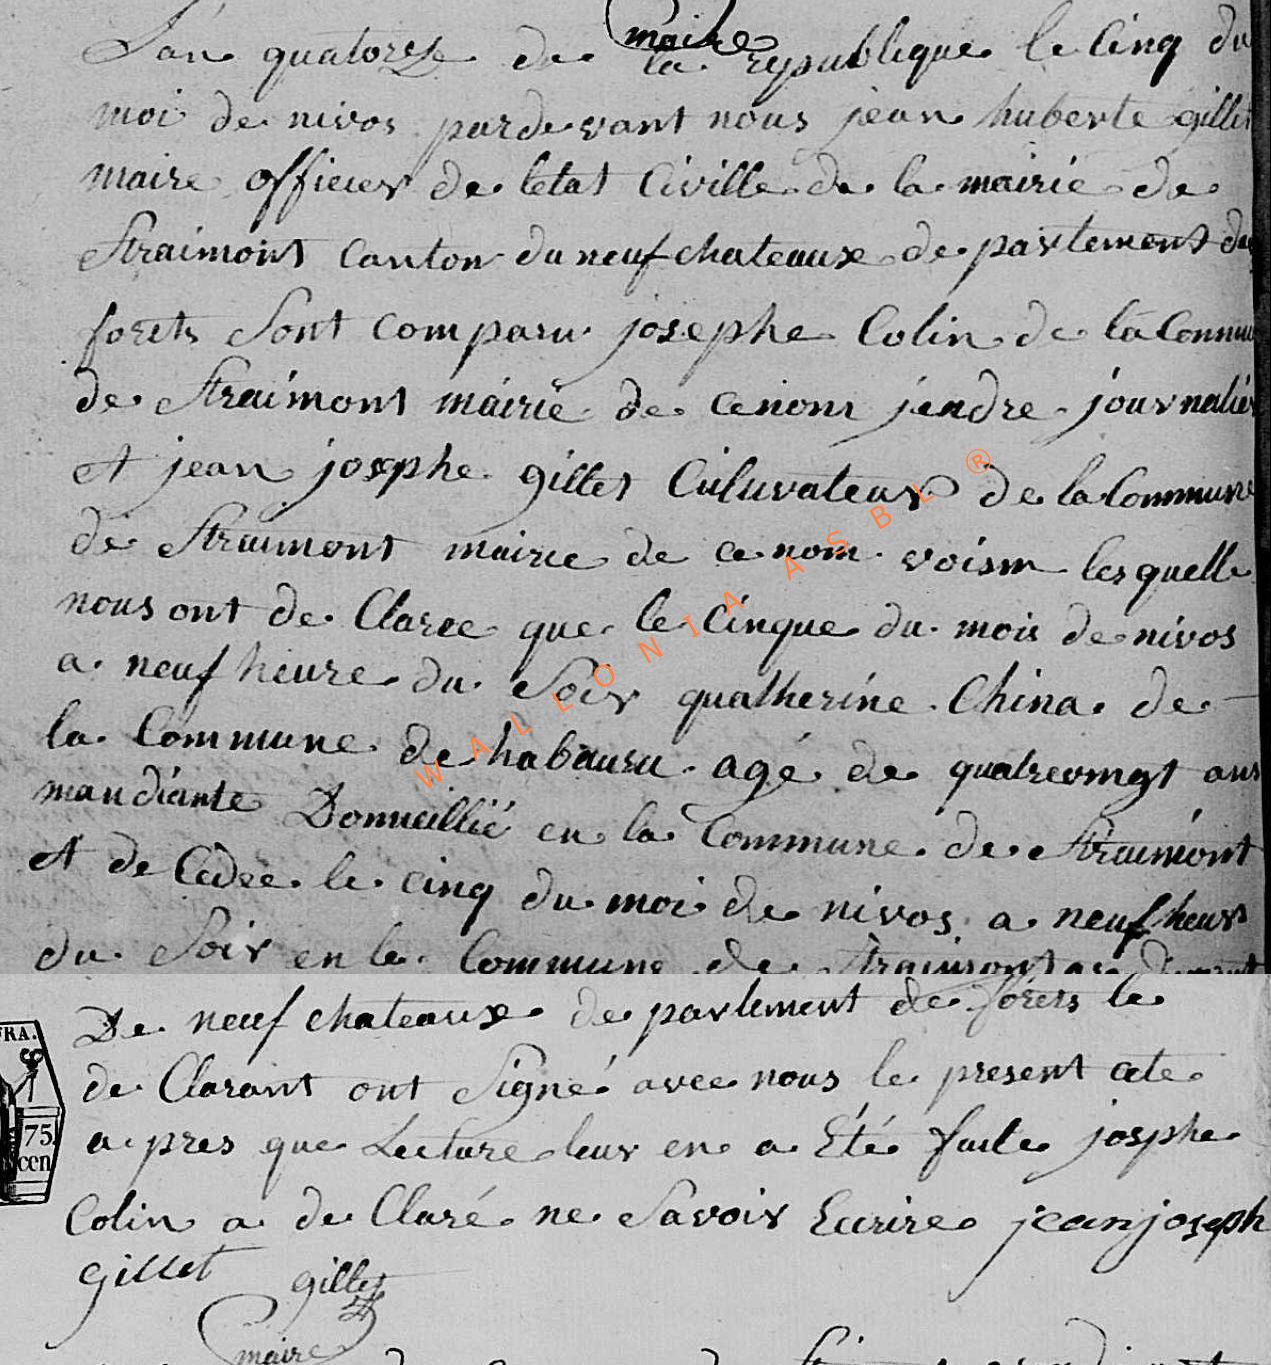 maire
Lan quatorze de la republique le Cinq du
moi de nivos pardevant nous jean huberte gillet
maire officier de letat Civille de la mairie de
Straimont Canton du neufchateaux de partement des
forets Sont comparu josephe Colin de la Commune
de Straimont mairie de ce nom jendre journalier
et jean josephe gillet Culuvateur de la Commune
de Straimont mairie de ce nom voisin lesquelle
nous ont de Claree que le Cinque du mois de nivos
a neuf heure du Soir quatherine China de
la Commune de habauru agé de quatrevingt ans
mandiante Domueillié en la Commune de Straimont
et de Cédée le cinq du moi de nivos a neuf heurs
du Soir en la Commune de Straimont
De neuf chateaux de partement de forets le
de Clarant ont Signé avec nous le present acte
a pres que Lecture leur en a Eté faite josphe
Colin a de Claré ne Savoir Ecrire jean joseph
gillet gillet
maire
FRA.
75
cen
WALLONIA ASBL ®